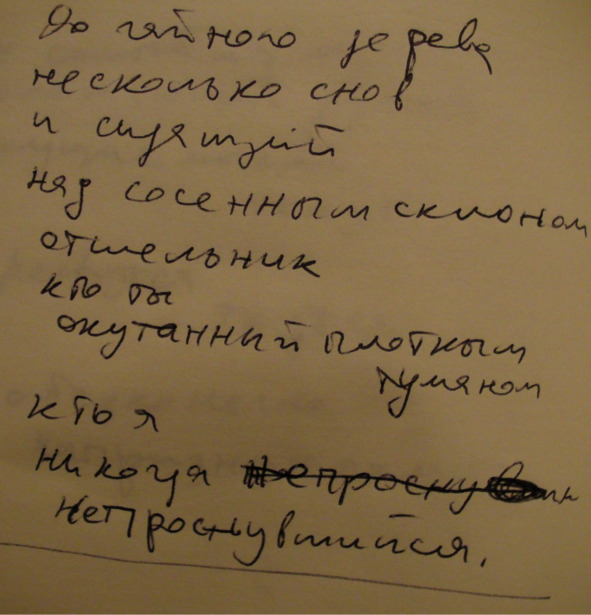 До чайного дерева
несколько снов
и сидящий
над сосенным склоном
отшельник
кто ты
окутанный плотным
туманом
кто я
никогда
непроснувшийся.